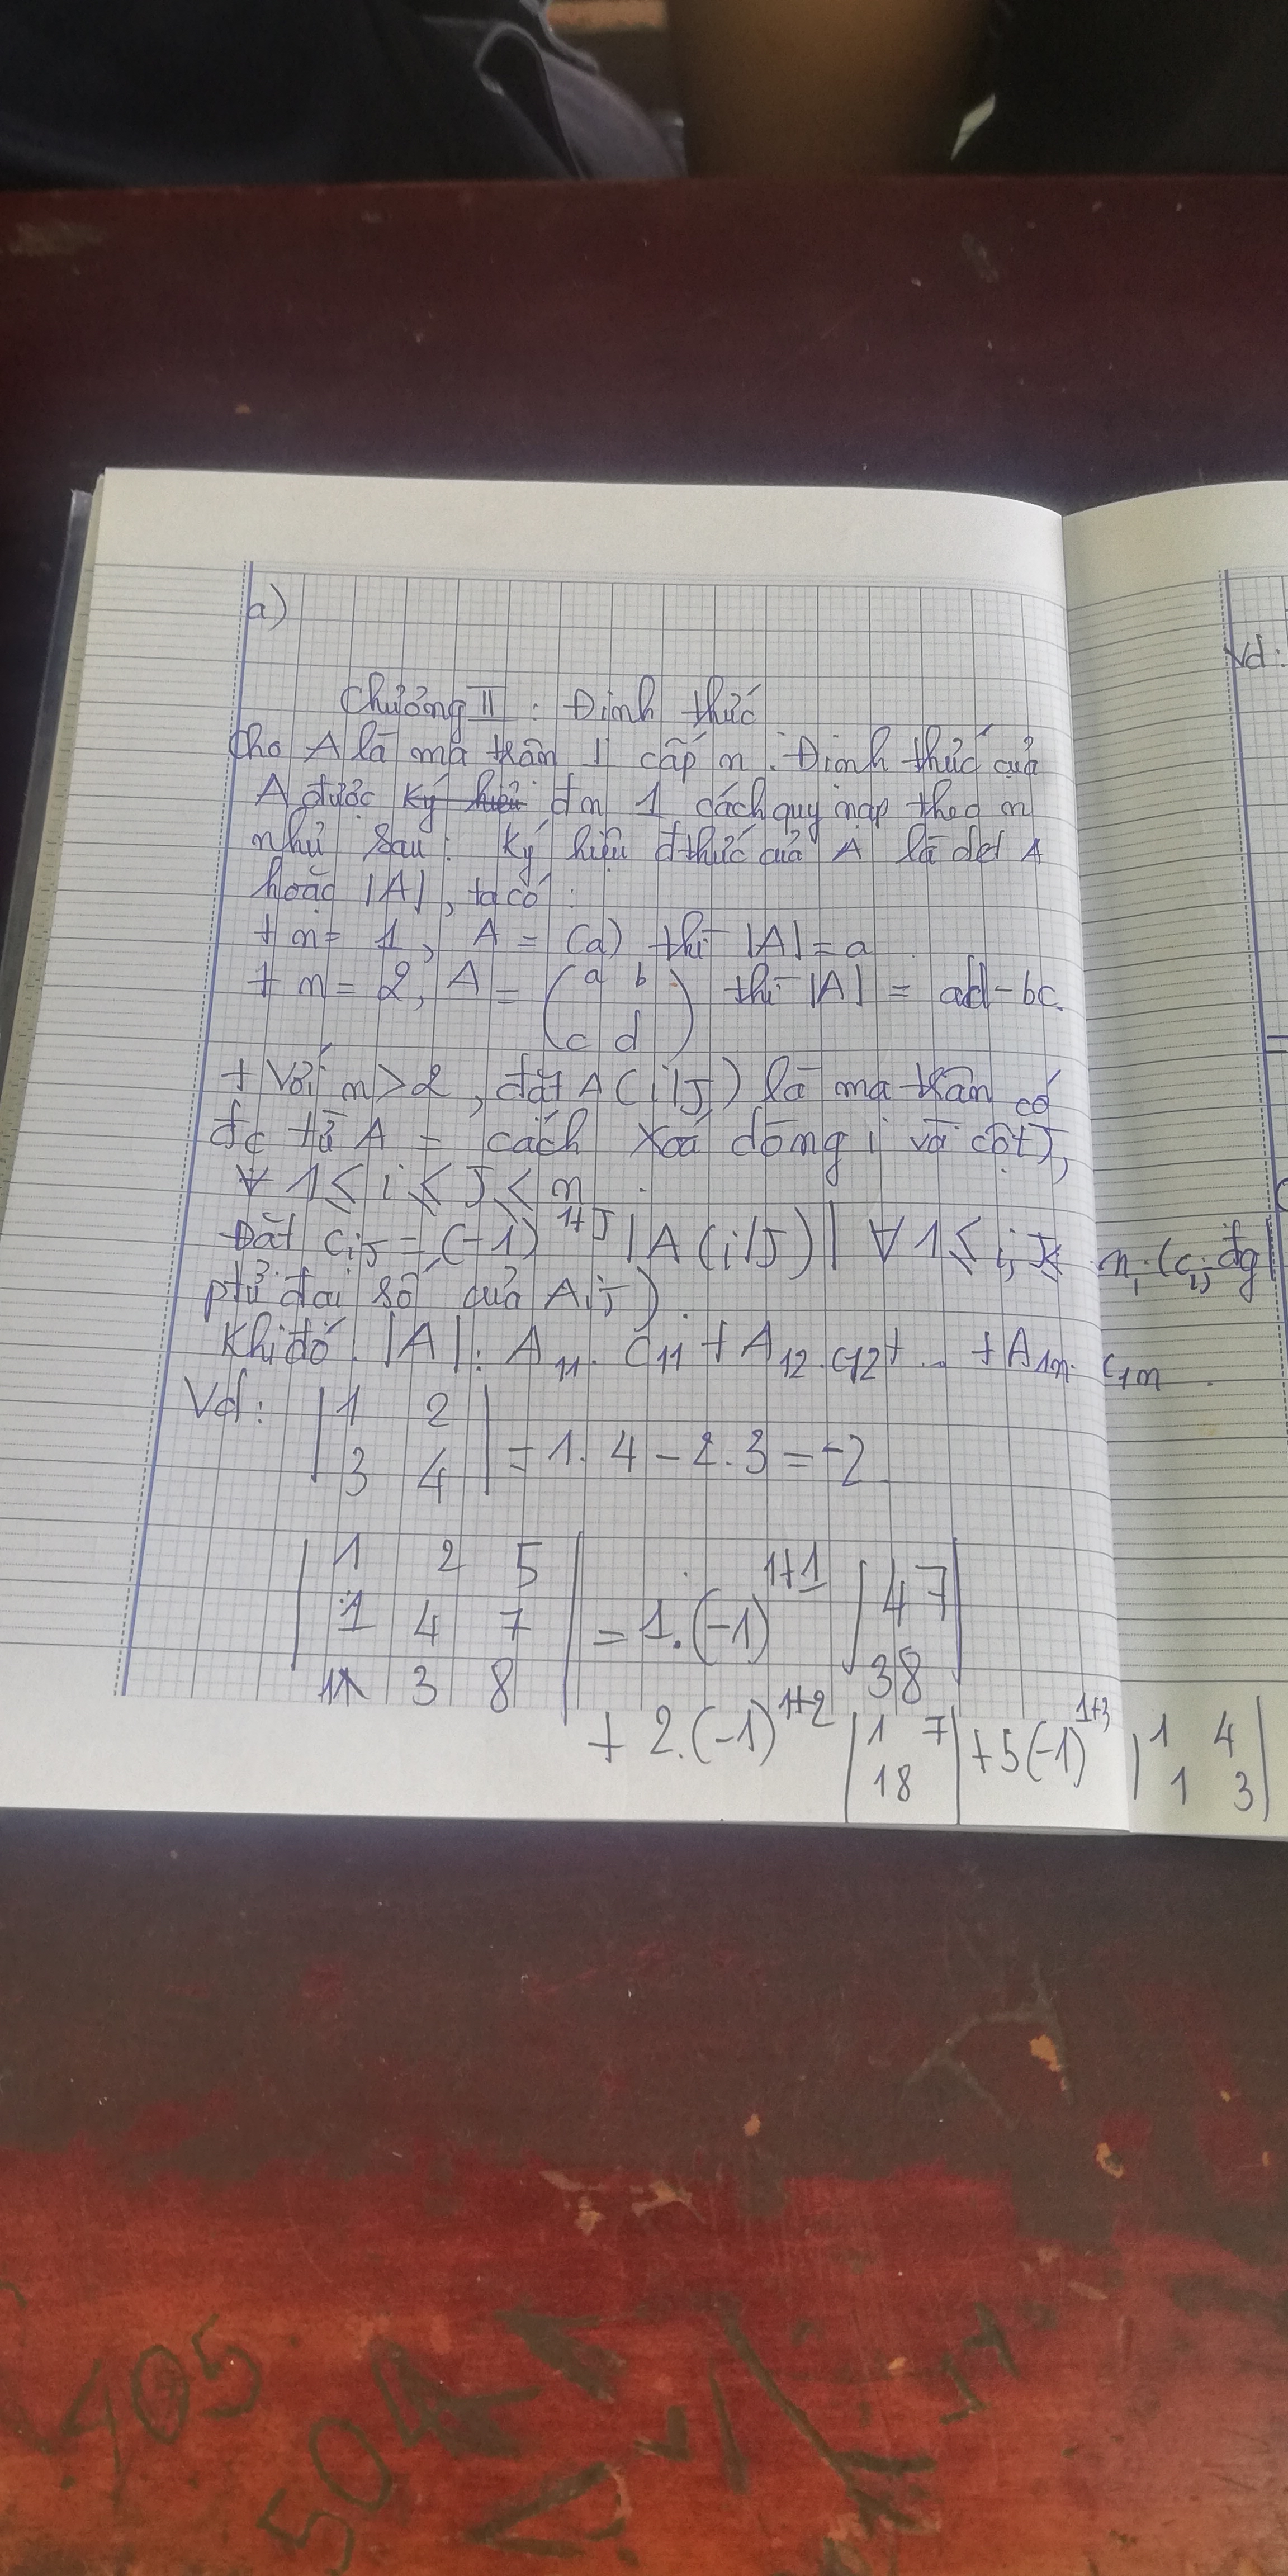 a)
Chương II : Định thức
Cho A là ma trận vuông cấp n. Định thức của
A được ký hiệu đn 1 cách quy nạp theo n
như sau: Ký hiệu đthức của A là det A
hoặc |A|, ta có:
+ n = 1, A = (a) thì |A| = a
+ n = 2, A = (a b
c d) thì |A| = ad - bc.
+ Với n > 2, đặt A(i/J) là ma trận có
đc từ A = cách xoá dòng i và cột J,
∀ 1 ≤ i ≤ J ≤ n.
Đặt CiJ = (-1)^1+J |A(i/J)| ∀ 1 ≤ i, n, (cij đg
ptử đại số của AiJ).
Khi đó |A|: A11. C11 + A12. C12 + ... + A1n. C1n.
Vd: |1 2
3 4| = 1. 4 - 2. 3 = -2.
|1 2 5
1 4 7
1 3 8| = 1. (-1)^1+1 |4 7
3 8|
+ 2. (-1)^1+2 |1 7
1 8| + 5(-1)^1+3 |1 4
1 3|
Vd:
405
504